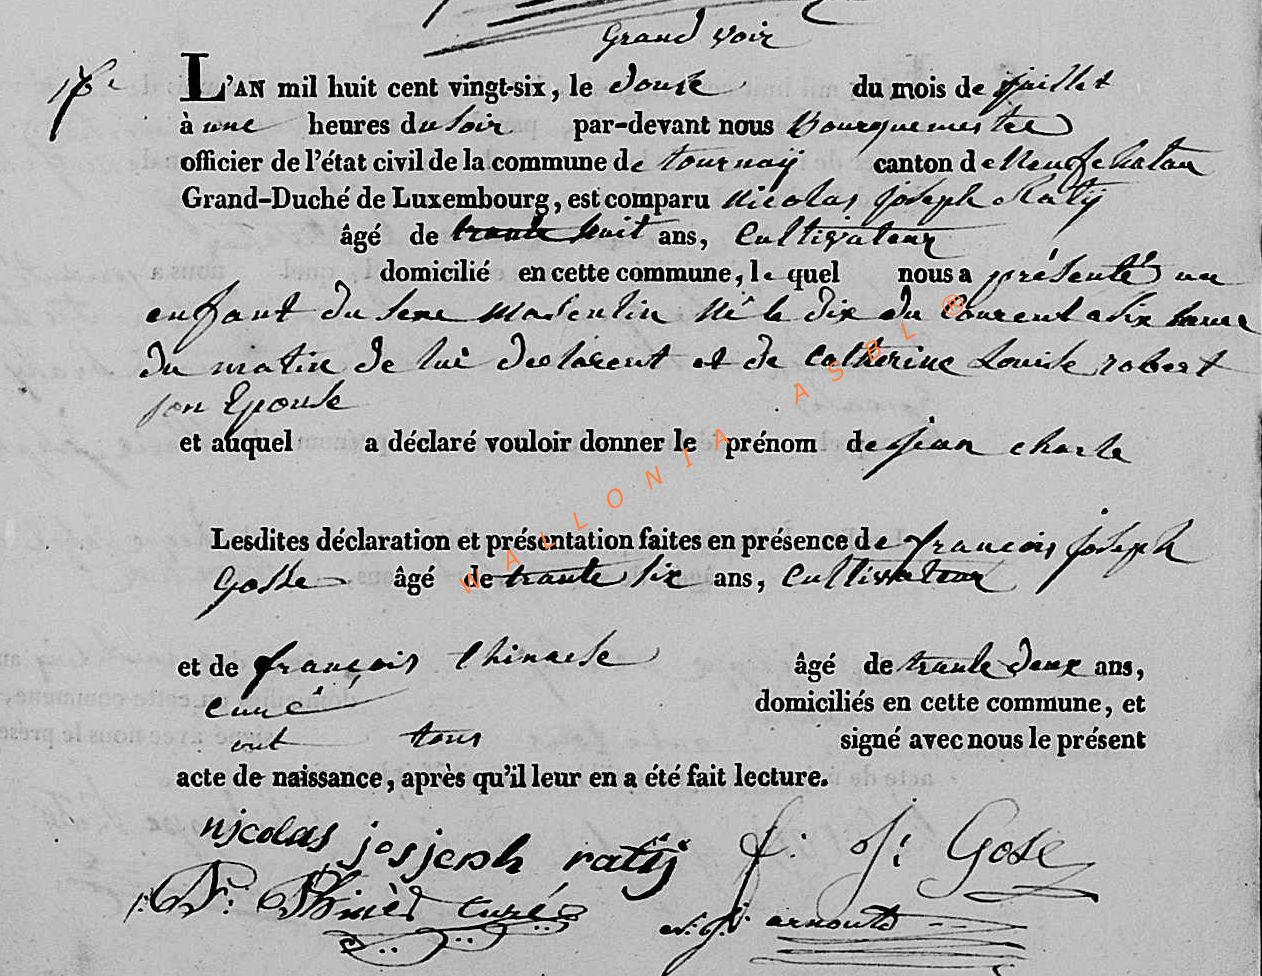 Grand voir
L'AN mil huit cent vingt-six, le douse du mois de juillet
à une heures du soir par-devant nous Bourquemestre
officier de l'état civil de la commune de tournay canton de Neufchatau
Grand-Duché de Luxembourg, est comparu Nicolas Joseph Raty
âgé de trante huit ans, Cultivateur
domicilié en cette commune, le quel nous a présenté un
enfant du sexe masculin né le dix du Courent a six heure
du matin de lui declarent et de Catherine Louise robert
son Epouse
et auquel a déclaré vouloir donner le prénom de jean charle
Lesdites déclaration et présentation faites en présence de françois joseph
Gosse âgé de trante six ans, Cultivateur
et de françois âgé de trante deux ans,
curé domiciliés en cette commune, et
ont tous signé avec nous le présent
acte de naissance, après qu'il leur en a été fait lecture.
nicolas josjeph ratÿ f: j: Gose
curé
n. j. arnould
WALLONIA ASBL ®